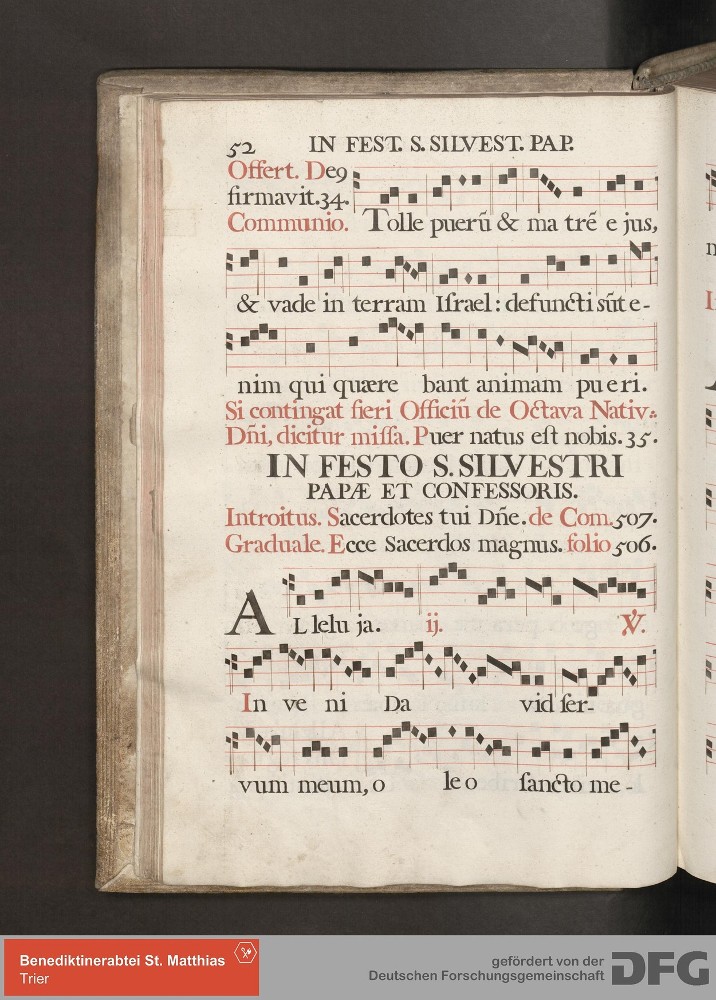 52 IN FEST. S. SILVEST. PAP.
Offert. De9
firmavit.34.
Communio. Tolle puerũ & ma trẽ e jus,
& vade in terram Iſrael: defuncti sũt e-
nim qui quære bant animam pu e ri.
Si contingat fieri Officiũ de Octava Nativ:.
Dñi, dicitur miſſa. Puer natus eſt nobis. 35.
IN FESTO S. SILVESTRI
PAPÆ ET CONFESSORIS.
Introitus. Sacerdotes tui Dñe. de Com. 507.
Graduale. Ecce Sacerdos magnus. folio 506.
A L lelu ja. ij. ℣.
In ve ni Da vid ſer-
vum meum, o le o ſancto me-
Benediktinerabtei St. Matthias
Trier
gefördert von der
Deutschen Forschungsgemeinschaft
DFG